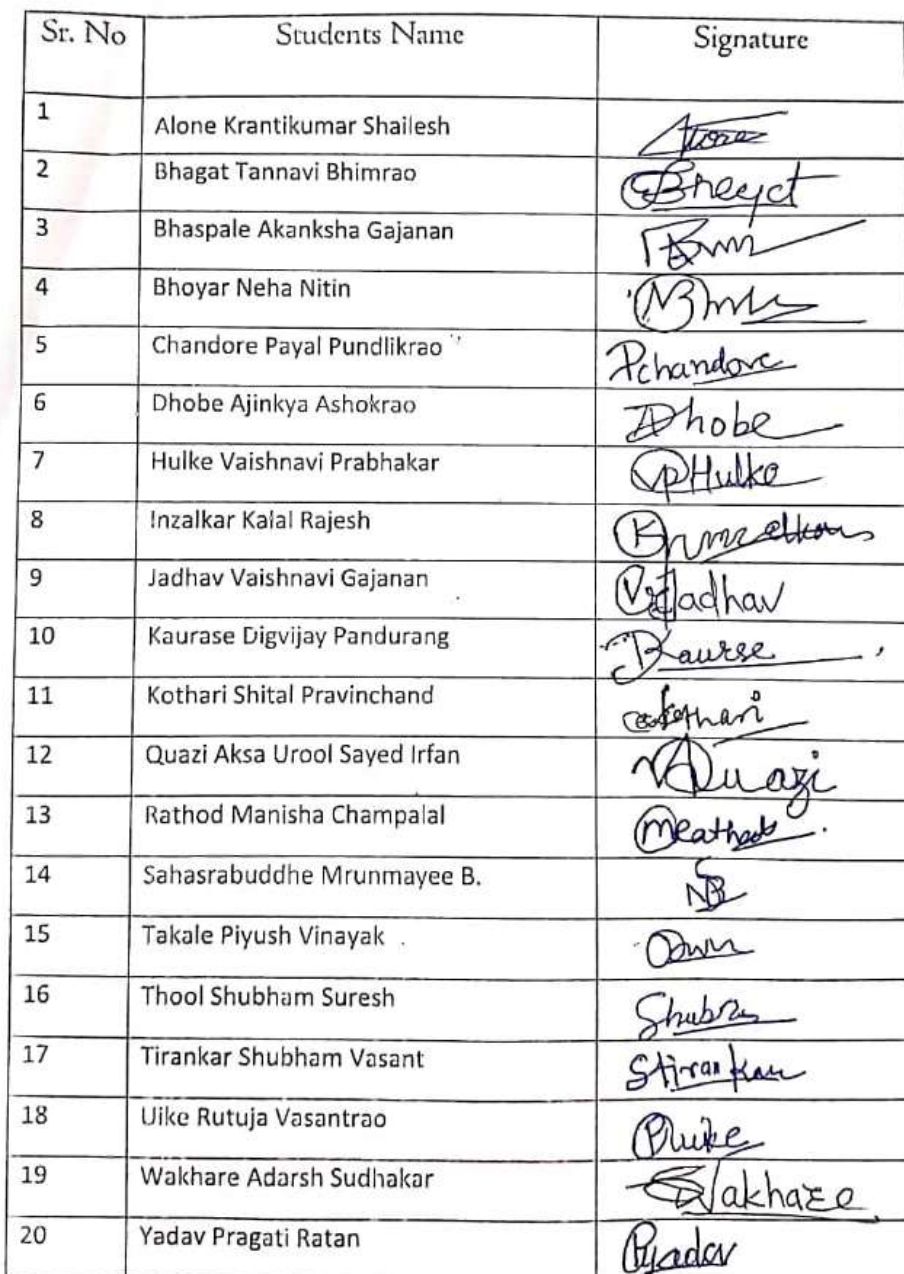 Sr. No Students Name Signature
1 Alone Krantikumar Shailesh
2 Bhagat Tannavi Bhimrao
3 Bhaspale Akanksha Gajanan
4 Bhoyar Neha Nitin
5 Chandore Payal Pundlikrao Pchandore
6 Dhobe Ajinkya Ashokrao Dhobe
7 Hulke Vaishnavi Prabhakar VPHulke
8 Inzalkar Kalal Rajesh
9 Jadhav Vaishnavi Gajanan VGJadhav
10 Kaurase Digvijay Pandurang
11 Kothari Shital Pravinchand
12 Quazi Aksa Urool Sayed Irfan
13 Rathod Manisha Champalal
14 Sahasrabuddhe Mrunmayee B.
15 Takale Piyush Vinayak
16 Thool Shubham Suresh
17 Tirankar Shubham Vasant Stirankar
18 Uike Rutuja Vasantrao
19 Wakhare Adarsh Sudhakar Wakhare
20 Yadav Pragati Ratan Pyadav